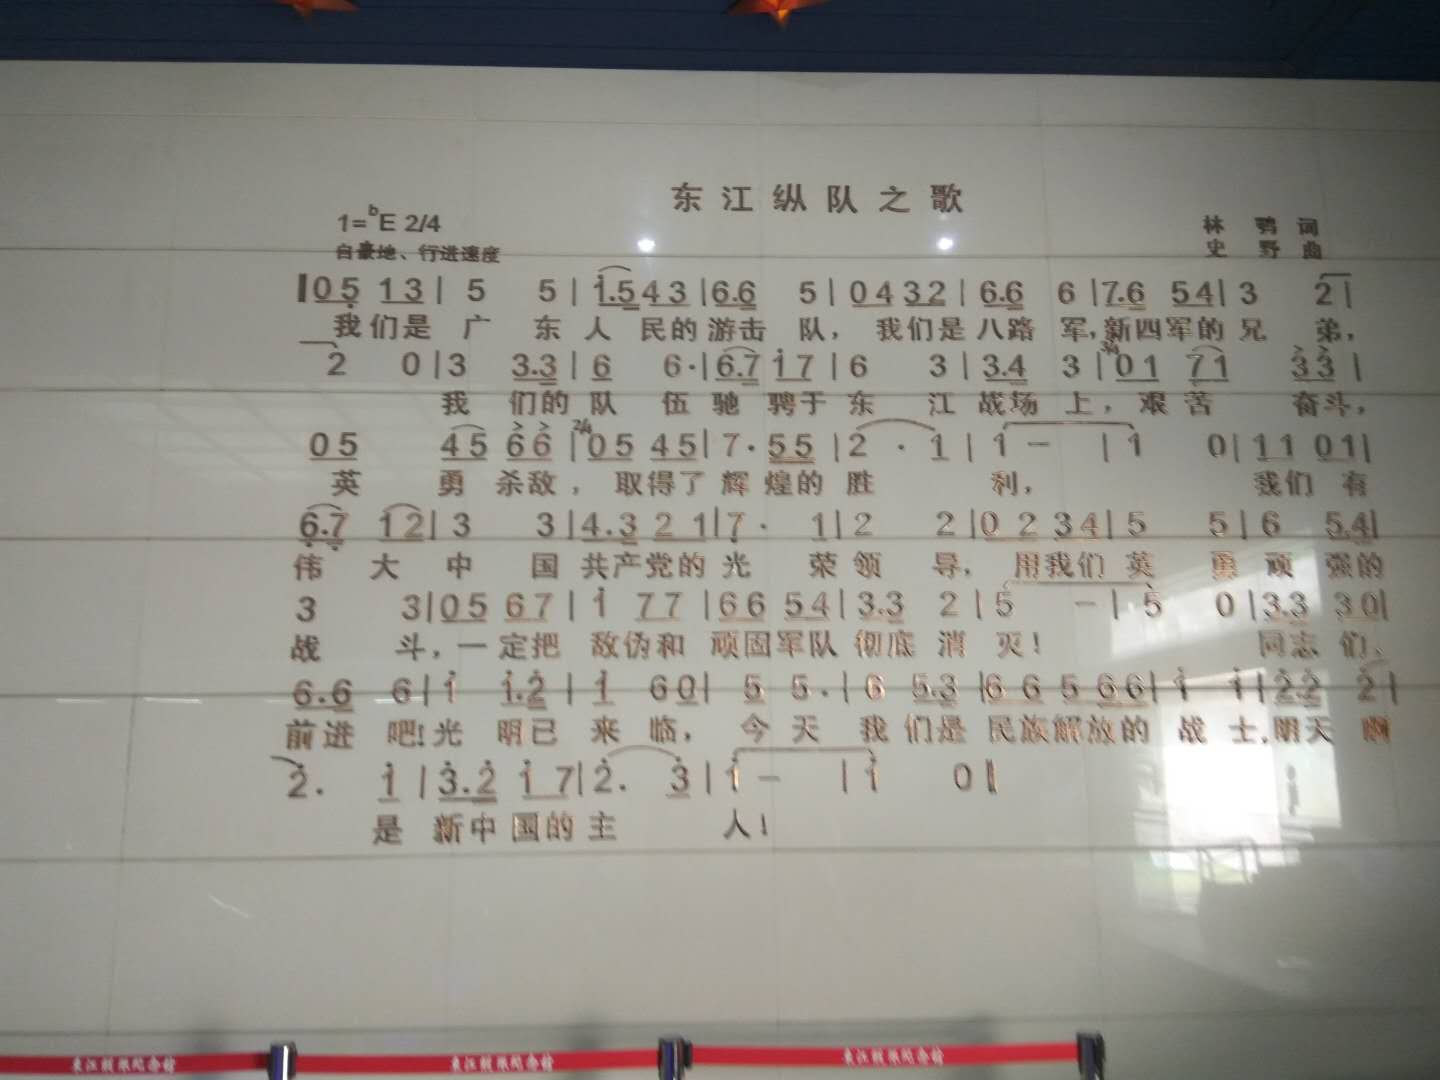 东江纵队之歌
1=ᵇE 2/4
林鹗词
自豪地、行进速度
史野曲
05 13 | 5 5 | 1.5 43 | 6.6 5 | 04 32 | 6.6 6 | 7.6 54 | 3 2 |
我们是广东人民的游击队，我们是八路军,新四军的兄弟，
2 0 | 3 3.3 | 6 6· | 6.7 17 | 6 3 | 3.4 3 | 3/4 01 71 33 |
我们的队伍驰骋于东江战场上，艰苦奋斗，
05 45 66 | 2/4 05 45 | 7· 55 | 2· 1 | 1 - | 1 0 | 11 01 |
英勇杀敌，取得了辉煌的胜利，我们有
6.7 12 | 3 3 | 4.3 21 | 7· 1 | 2 2 | 02 34 | 5 5 | 6 5.4 |
伟大中国共产党的光荣领导，用我们英勇顽强的
3 3 | 05 67 | 1 77 | 66 54 | 3.3 2 | 5 - | 5 0 | 3.3 30 |
战斗，一定把敌伪和顽固军队彻底消灭！同志们，
6.6 6 | 1 1.2 | 1 60 | 5 5. | 6 5.3 | 66 566 | 1 1 | 22 2 |
前进吧!光明已来临，今天我们是民族解放的战士,明天啊
2. 1 | 3.2 17 | 2. 3 | 1 - | 1 0 ‖
是新中国的主人！
东江纵队纪念馆
东江纵队纪念馆
东江纵队纪念馆